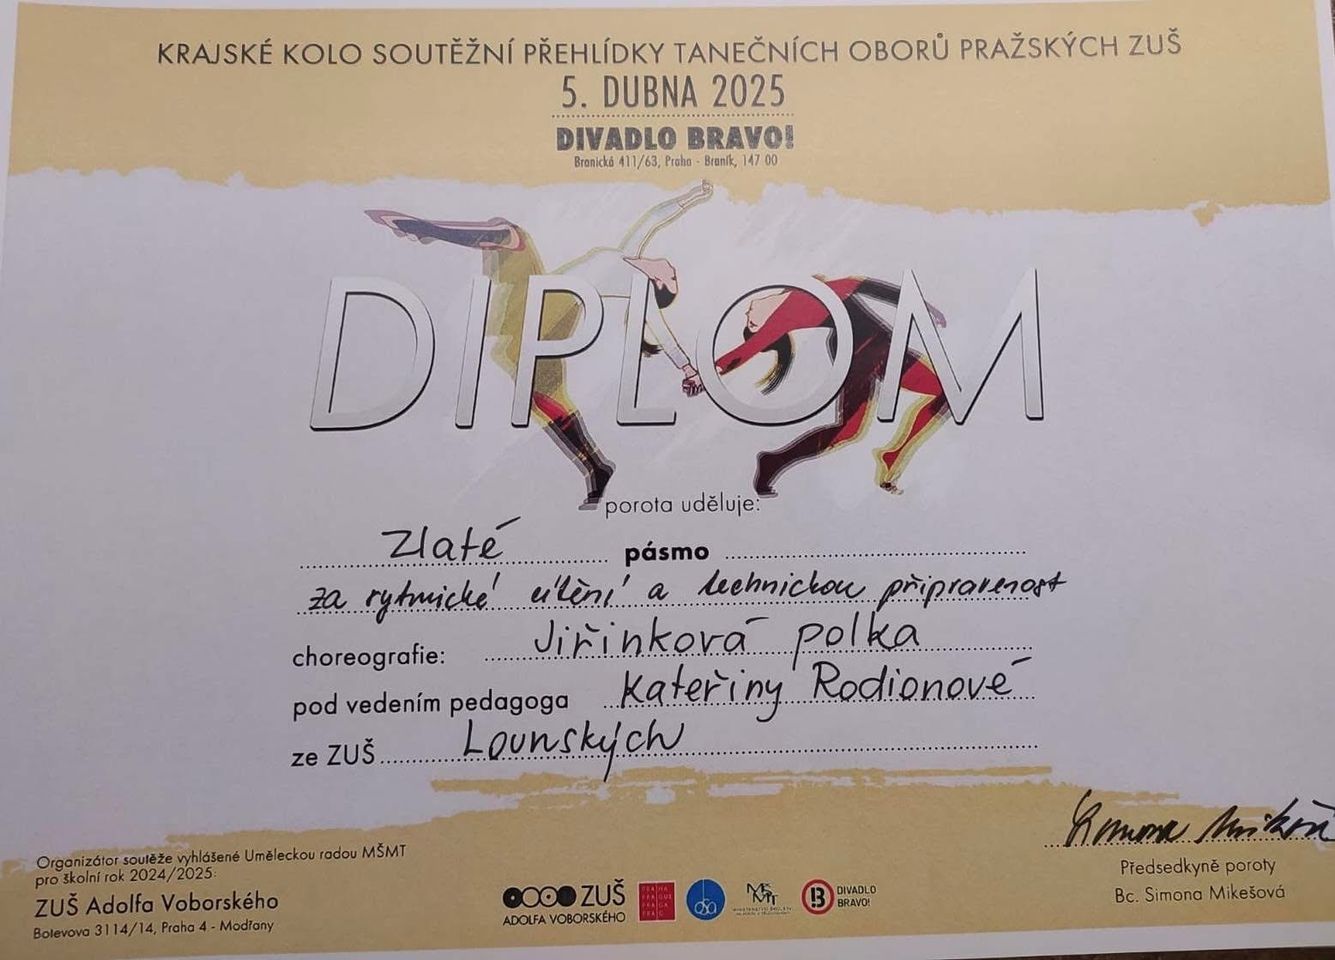 KRAJSKÉ KOLO SOUTĚŽNÍ PŘEHLÍDKY TANEČNÍCH OBORŮ PRAŽSKÝCH ZUŠ
5. DUBNA 2025
DIVADLO BRAVO!
Branická 411/63, Praha - Braník, 147 00
DIPLOM
porota uděluje:
Zlaté pásmo
za rytmické cítění a technickou připravenost
choreografie: Jiřinková polka
pod vedením pedagoga Kateřiny Rodionové
ze ZUŠ Lounských
Předsedkyně poroty
Bc. Simona Mikešová
Organizátor soutěže vyhlášené Uměleckou radou MŠMT
pro školní rok 2024/2025:
ZUŠ Adolfa Voborského
Botevova 3114/14, Praha 4 - Modřany
ZUŠ
ADOLFA VOBORSKÉHO
PRA HA
PRA GUE
PRA GA
PRA G
OSA
MŠMT
B DIVADLO
BRAVO!